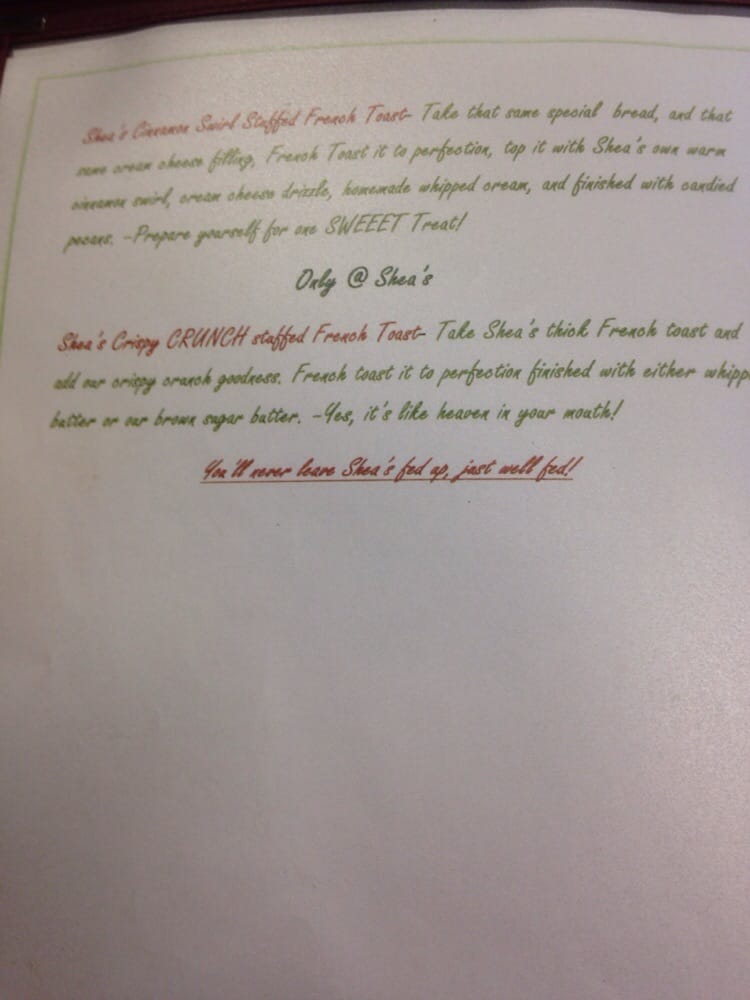 Shea's Cinnamon Swirl Stuffed French Toast- Take that same special bread, and that
same cream cheese filling, French Toast it to perfection, top it with Shea's own warm
cinnamon swirl, cream cheese drizzle, homemade whipped cream, and finished with candied
pecans. -Prepare yourself for one SWEEET Treat!
Only @ Shea's
Shea's Crispy CRUNCH stuffed French Toast- Take Shea's thick French toast and
add our crispy crunch goodness. French toast it to perfection finished with either whipp
butter or our brown sugar butter. -Yes, it's like heaven in your mouth!
You'll never leave Shea's fed up, just well fed!